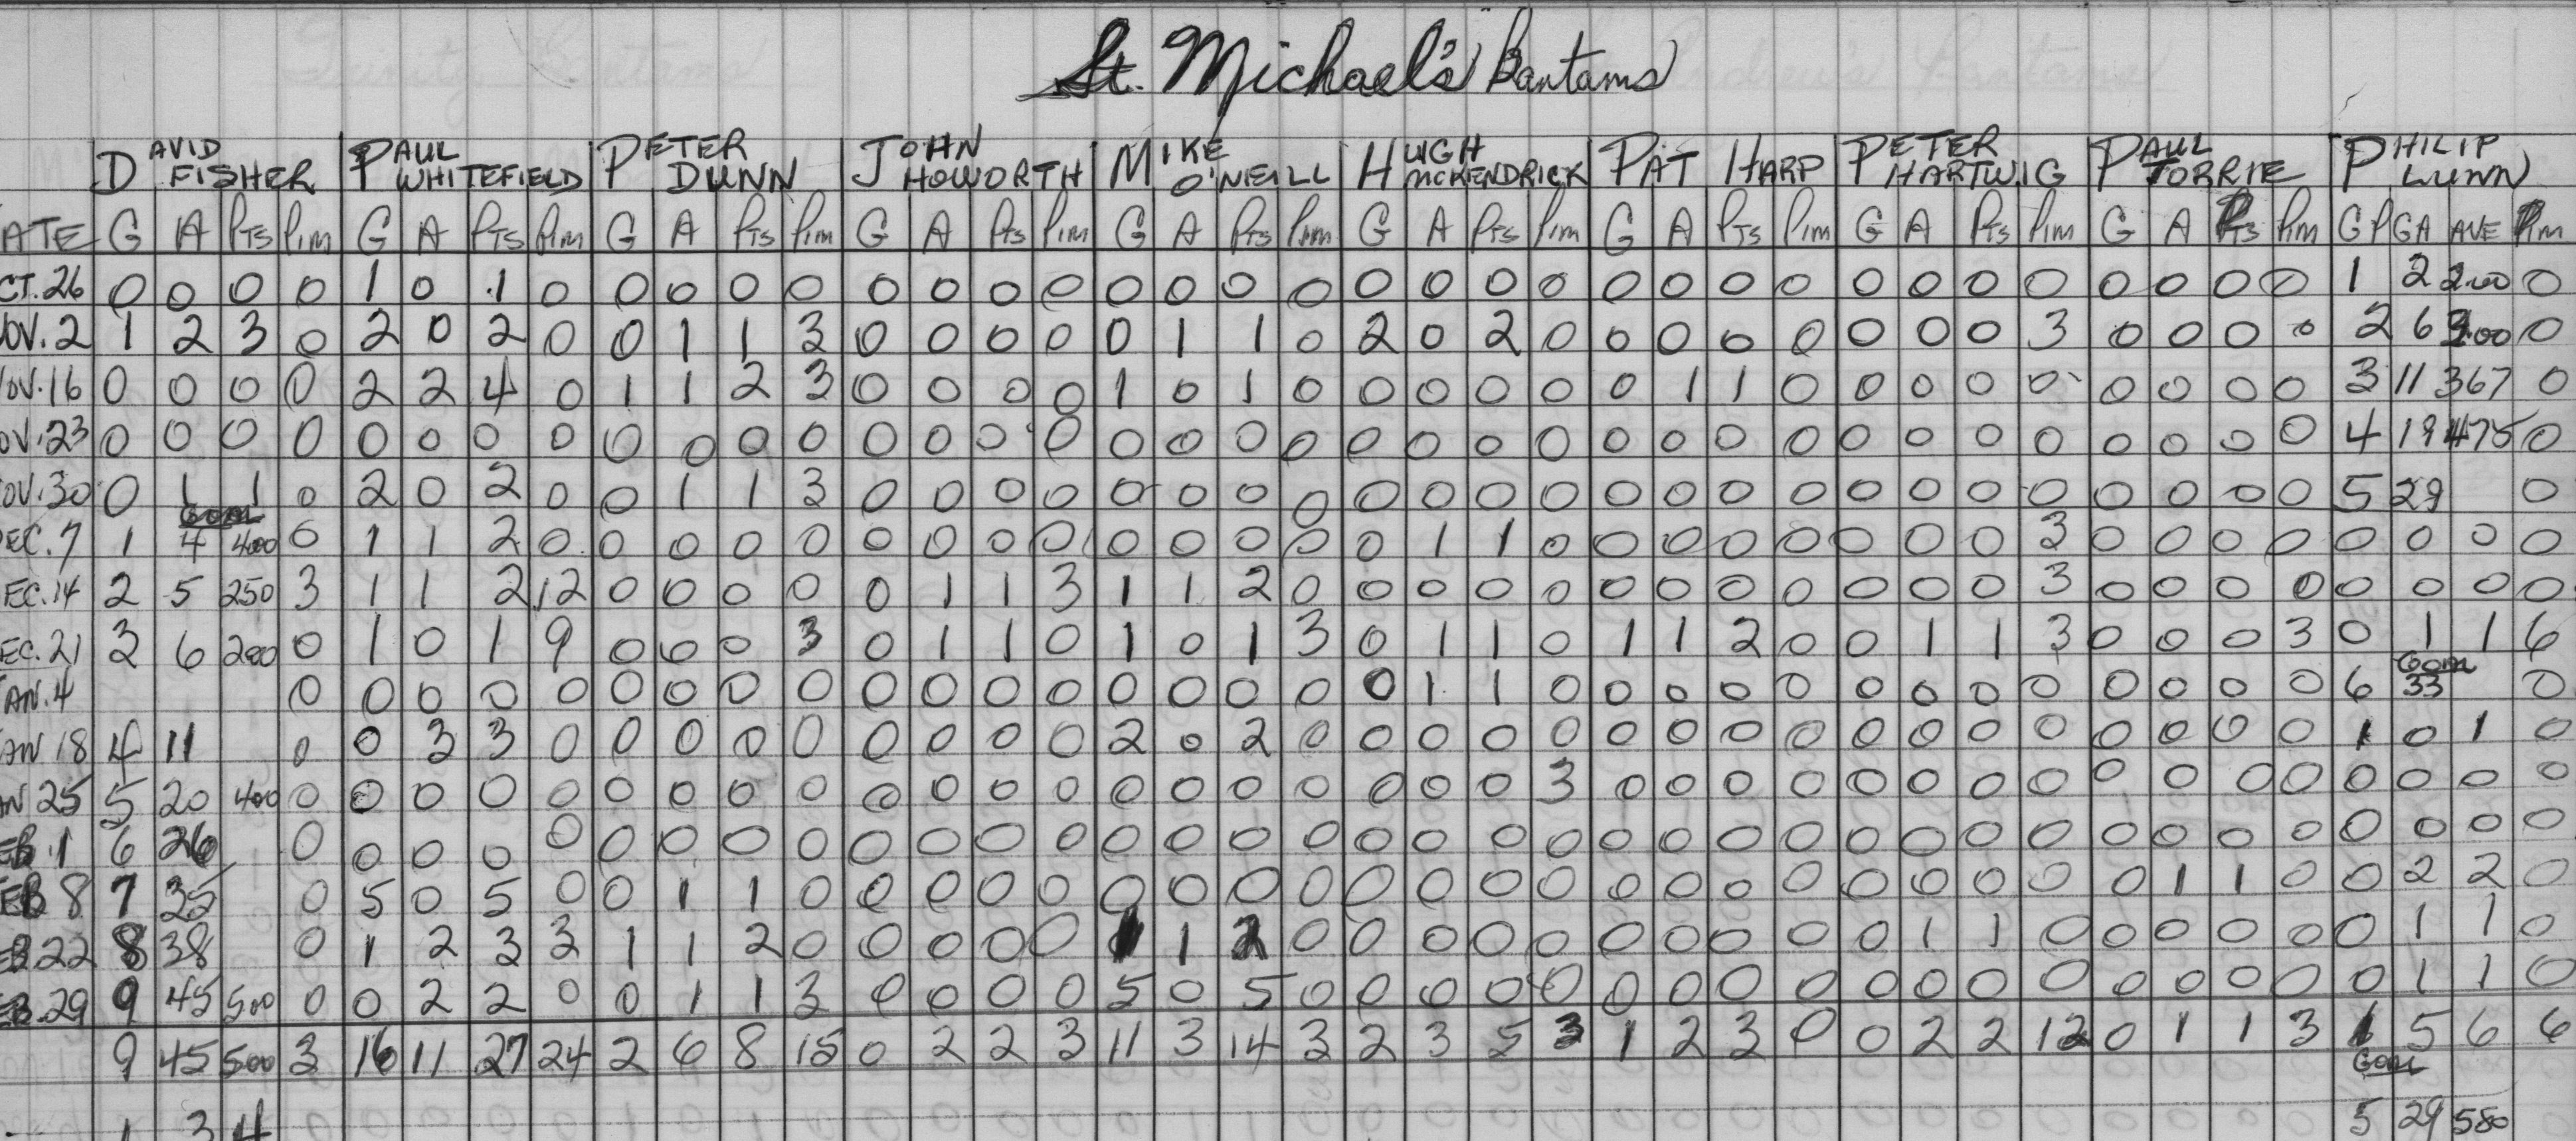 St. Michael's Bantams
DAVID FISHER PAUL WHITEFIELD PETER DUNN JOHN HOWORTH MIKE O'NEILL HUGH MCKENDRICK PAT HARP PETER HARTWIG PAUL TORRIE PHILIP LUNN
ATE G A PTS PIM G A PTS PIM G A PTS PIM G A PTS PIM G A PTS PIM G A PTS PIM G A PTS PIM G A PTS PIM G A PTS PIM GP GA AVE PIM
CT. 26 0 0 0 0 1 0 1 0 0 0 0 0 0 0 0 0 0 0 0 0 0 0 0 0 0 0 0 0 0 0 0 0 0 0 0 0 1 2 2.00 0
OV. 2 1 2 3 0 2 0 2 0 0 1 1 3 0 0 0 0 0 1 1 0 2 0 2 0 0 0 0 0 0 0 0 3 0 0 0 0 2 6 300 0
OV. 16 0 0 0 0 2 2 4 0 1 1 2 3 0 0 0 0 1 0 1 0 0 0 0 0 0 1 1 0 0 0 0 0 0 0 0 0 3 11 367 0
OV. 23 0 0 0 0 0 0 0 0 0 0 0 0 0 0 0 0 0 0 0 0 0 0 0 0 0 0 0 0 0 0 0 0 0 0 0 0 4 19 475 0
OV. 30 0 1 1 0 2 0 2 0 0 1 1 3 0 0 0 0 0 0 0 0 0 0 0 0 0 0 0 0 0 0 0 0 0 0 0 0 5 29 0
Goal
EC. 7 1 4 400 0 1 1 2 0 0 0 0 0 0 0 0 0 0 0 0 0 0 1 1 0 0 0 0 0 0 0 0 3 0 0 0 0 0 0 0 0
EC. 14 2 5 250 3 1 1 2 12 0 0 0 0 0 1 1 3 1 1 2 0 0 0 0 0 0 0 0 0 0 0 0 3 0 0 0 0 0 0 0 0
EC. 21 3 6 200 0 1 0 1 9 0 0 0 3 0 1 1 0 1 0 1 3 0 1 1 0 1 1 2 0 0 1 1 3 0 0 0 3 0 1 1 6
Goal
AN. 4 0 0 0 0 0 0 0 0 0 0 0 0 0 0 0 0 0 0 1 1 0 0 0 0 0 0 0 0 0 0 0 0 0 6 33 0
AN 18 4 11 0 0 3 3 0 0 0 0 0 0 0 0 0 2 0 2 0 0 0 0 0 0 0 0 0 0 0 0 0 0 0 0 0 1 0 1 0
AN 25 5 20 400 0 0 0 0 0 0 0 0 0 0 0 0 0 0 0 0 0 0 0 0 3 0 0 0 0 0 0 0 0 0 0 0 0 0 0 0 0
EB. 1 6 26 0 0 0 0 0 0 0 0 0 0 0 0 0 0 0 0 0 0 0 0 0 0 0 0 0 0 0 0 0 0 0 0 0 0 0 0 0
EB 8 7 35 0 5 0 5 0 0 1 1 0 0 0 0 0 0 0 0 0 0 0 0 0 0 0 0 0 0 0 0 0 0 1 1 0 0 2 2 0
EB 22 8 38 0 1 2 3 3 1 1 2 0 0 0 0 0 1 1 2 0 0 0 0 0 0 0 0 0 0 1 1 0 0 0 0 0 0 1 1 0
EB. 29 9 45 500 0 0 2 2 0 0 1 1 3 0 0 0 0 5 0 5 0 0 0 0 0 0 0 0 0 0 0 0 0 0 0 0 0 0 1 1 0
9 45 500 3 16 11 27 24 2 6 8 15 0 2 2 3 11 3 14 3 2 3 5 3 1 2 3 0 0 2 2 12 0 1 1 3 1 5 6 6
Goal
1 3 4 5 29 580